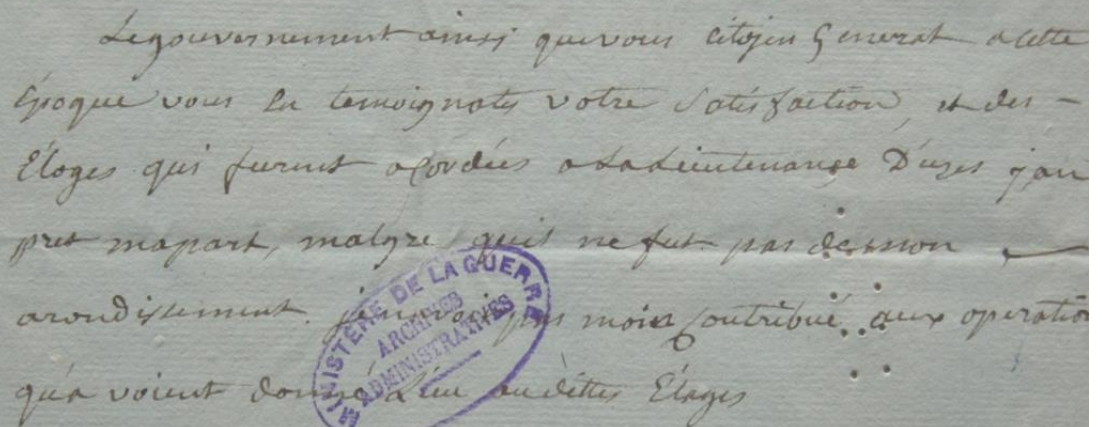 Legouvernement ainsi quevous Citoyen General acette
Epoque vous En temoignates votre Satisfaction, et des -
Éloges qui furent acordées alaLieutenance D'uzes j'an
pres mapart, malgre quil ne fut pas de mon
arondissement. pas moin Contribué aux operation
qu'a voient donné Lieu audittes Éloges
MINISTÈRE DE LA GUERRE
ARCHIVES
ADMINISTRATIVES